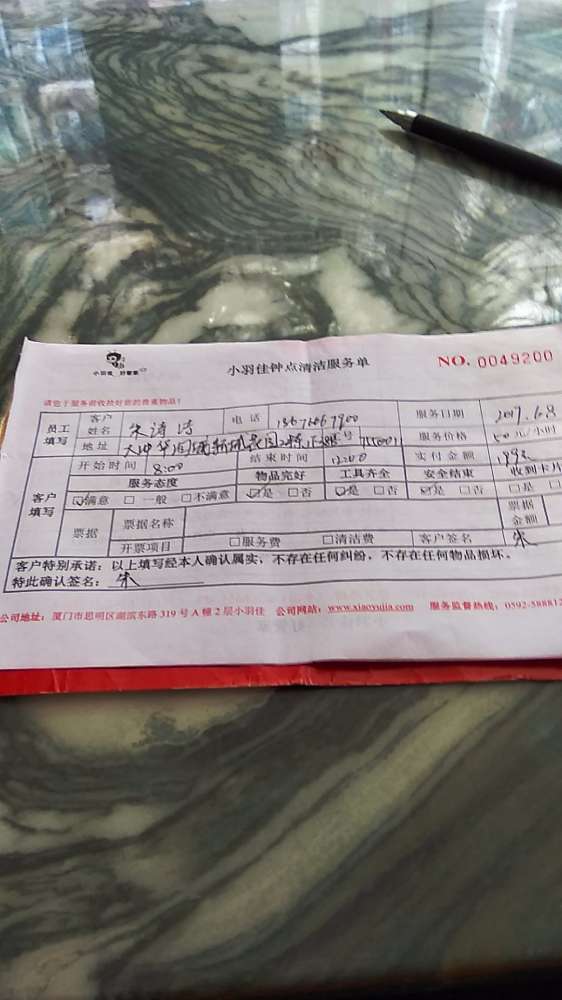 小羽佳 好管家
小羽佳钟点清洁服务单
NO. 0049200
请您于服务前收拾好您的贵重物品!
员工填写 客户姓名 朱 电话 服务日期 2017.6.8
地址 服务价格 50元/小时
客户填写 开始时间 8:00 结束时间 12:00 实付金额
服务态度 物品完好 工具齐全 安全结束 收到卡片
☑满意 □一般 □不满意 ☑是 □否 ☑是 □否 ☑是 □否 □是 □
票据 票据名称 票据金额
开票项目 □服务费 □清洁费 客户签名 朱
客户特别承诺:以上填写经本人确认属实,不存在任何纠纷,不存在任何物品损坏。
特此确认签名:朱
公司地址:厦门市思明区湖滨东路 319 号 A 幢 2 层小羽佳 公司网站:www.xiaoyujia.com 服务监督热线:0592-588812